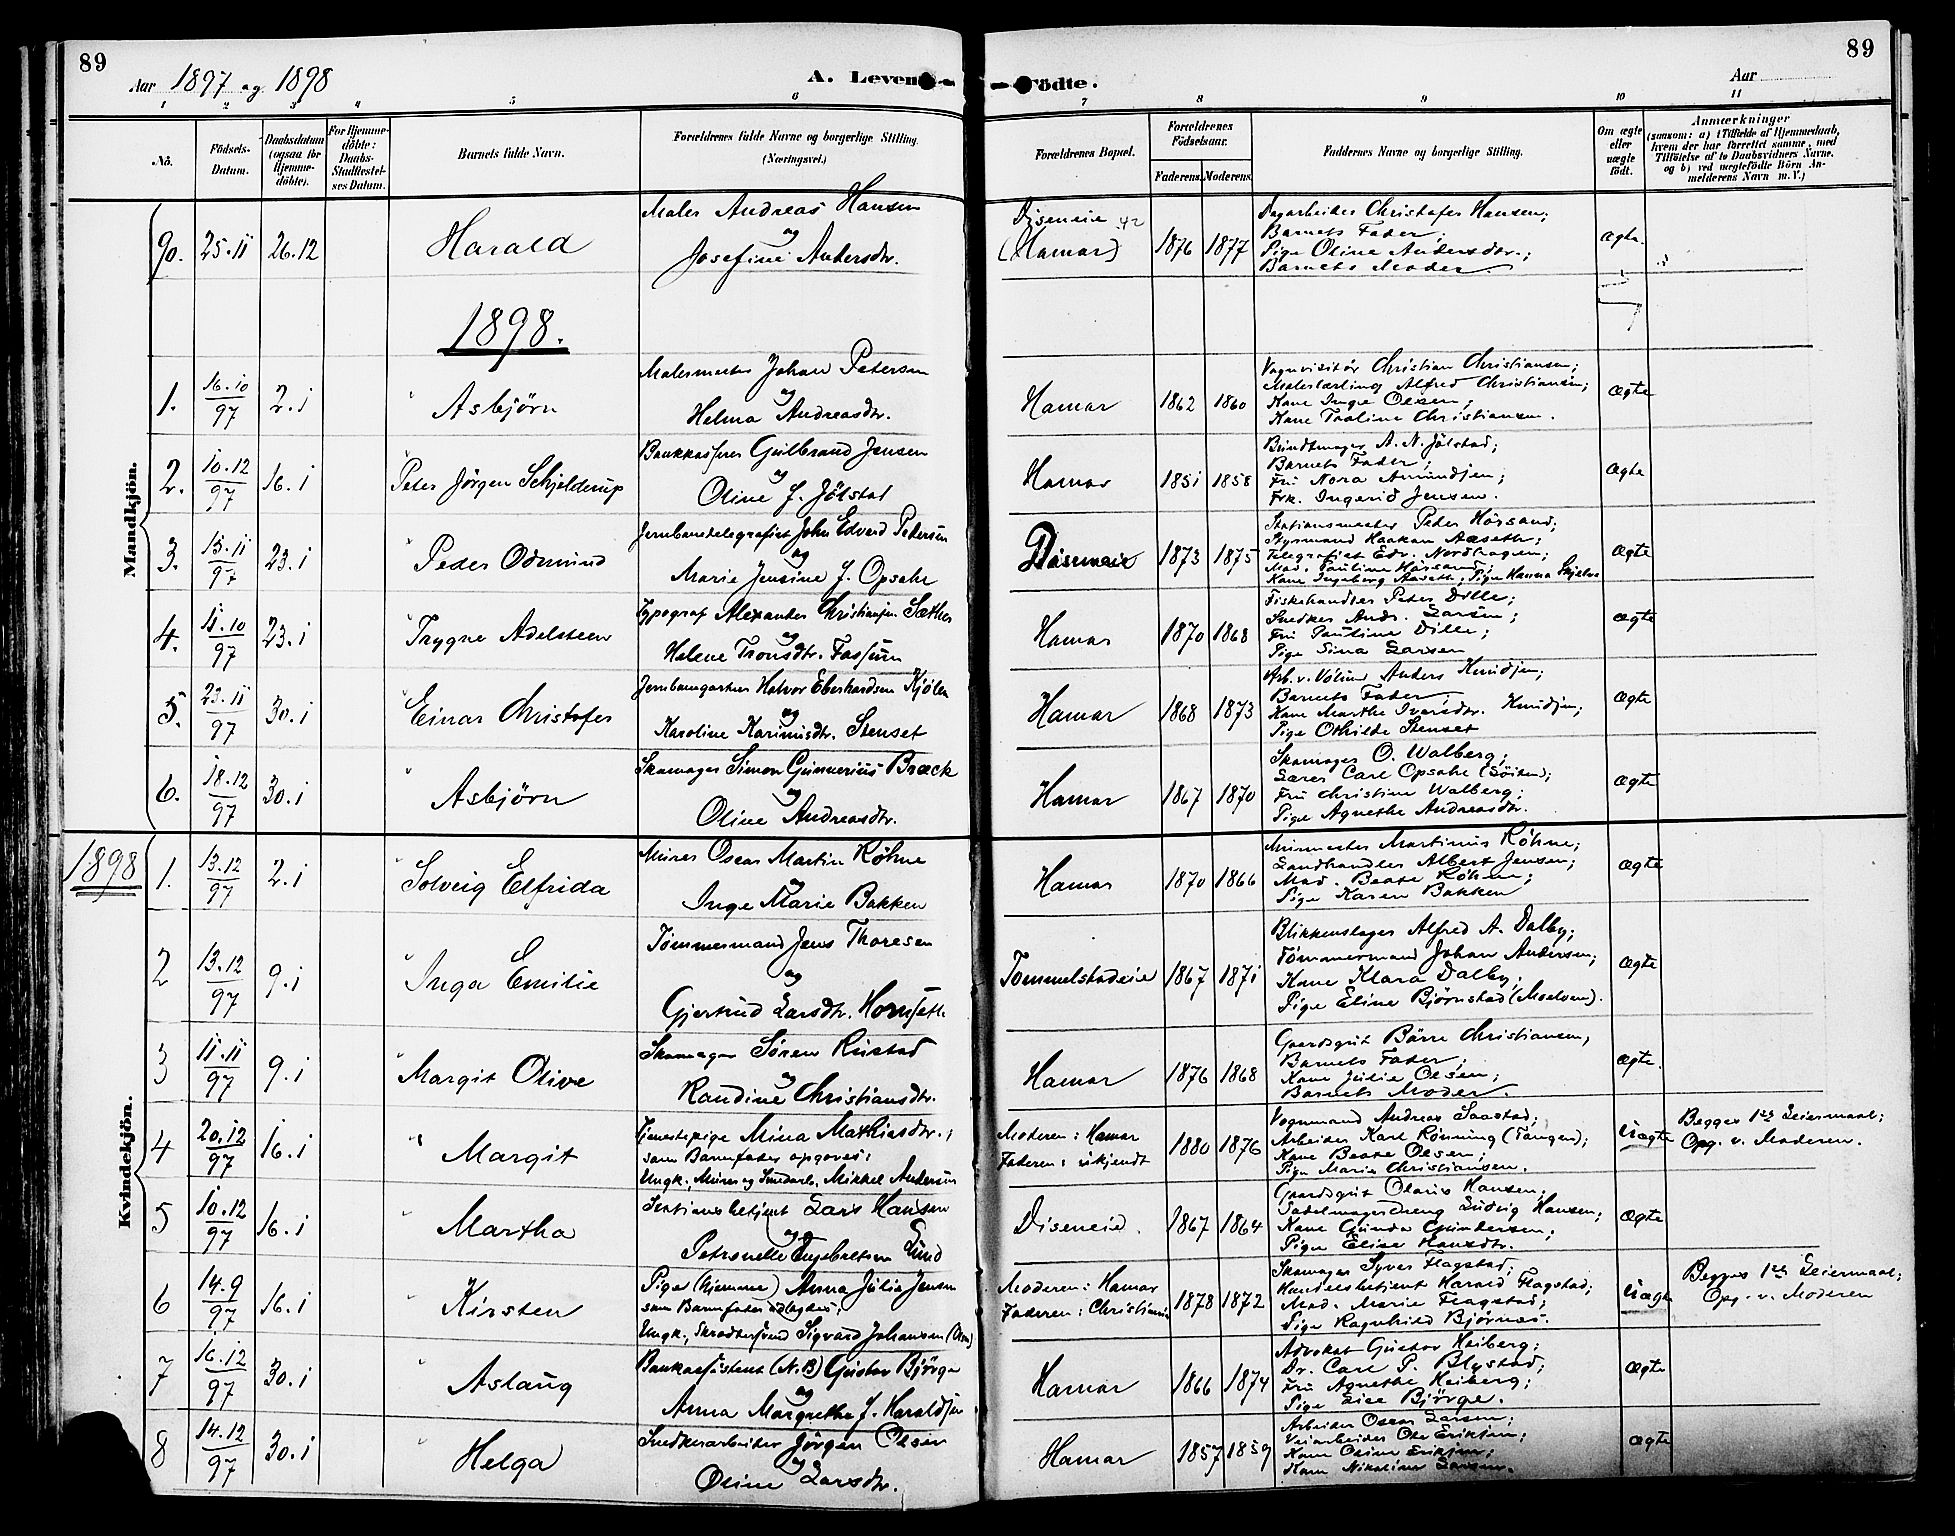 89
Aar 1897 og 1898
A. Levende
Födte.
Aar
89
1 2 3 4 5 6 7 8 9 10 11
No.
Födsels-Datum.
Daabsdatum (ogsaa for Hjemme-döbte).
For Hjemme-döbte: Daabs-Stadfæstel-ses Datum.
Barnets fulde Navn.
Forældrenes fulde Navne og borgerlige Stilling. (Næringsvei.)
Forældrenes Bopæl.
Forældrenes Födselsaar.
Faderens. Moderens.
Faddernes Navne og borgerlige Stilling.
Om ægte eller uægte födt.
Anmærkninger
(saasom: a) i Tilfælde af Hjemmedaab, hvem der har forrettet samme, med Tilföielse af to Daabsvidners Navne, og b) ved uægtefödte Börn An-melderens Navn m. V.)
Mandkjön.
90. 25.11 26.12 Harald
Maler Andreas Hansen
og
Josefine Andersdtr.
Diseneie 42
(Hamar) 1876 1877
Dagarbeider Christofer Hansen;
Barnets Fader;
Pige Oline Andersdtr.;
Barnets Moder
ægte.
1898.
1. 16.10/97 2.1 Asbjörn
Malermester Johan Petersen
og
Helma Andreasdtr.
Hamar 1862 1860
Vognvisitör Christian Christiansen;
Malerlærling Alfred Christiansen;
Kone Inge Olsen;
Kone Paoline Christiansen.
ægte
2. 10.12/97 16.1 Peter Jörgen Schjelderup
Bankkasserer Gulbrand Jensen
og
Oline J. Jölstad
Hamar 1851 1858
Bundtmager A. N. Jölstad;
Barnets Fader;
Fru Nora Amundsen;
Frk. Ingerid Jensen.
ægte
3. 15.11/97 23.1 Peder Odmund
Jernbanetelegrafist John Edvard Pedersen
og
Marie Jensine J. Opsahl
Diseneie 1873 1875
Stationsmester Peder Hörsand;
Styrmand Haakon Aaseth;
Telegrafist Edv. Nordhagen;
Mad. Pauline Hörsand;
Kone Ingeborg Aaseth; Pige Hanna Skjelve
ægte
4. 11.10/97 23.1 Trygve Adelsteen
Typograf Alexander Christiansen Sæther
og
Helene Tronsdtr. Fossum
Hamar 1870 1868
Fiskehandler Peter Dille;
Snedker Andr. Larsen;
Fru Pauline Dille;
Pige Sina Larsen
ægte
5. 23.11/97 30.1 Einar Christofer
Jernbanegartner Halvor Eberhardsen Kjölen
og
Karoline Karinusdtr. Stenset
Hamar 1868 1873
Arb. v. Völund Anders Knudsen;
Barnets Fader;
Kone Marthe Iversdtr. Knudsen;
Pige Othilde Stenset
ægte
6. 18.12/97 30.1 Asbjörn
Skomager Simon Gunnerius Bræck
og
Oline Andreasdtr.
Hamar 1867 1870
Skomager O. Walberg;
Lærer Carl Opsahl (Löiten);
Fru Christine Walberg;
Pige Agnethe Andreasdtr.
ægte
1898
Kvindekjön.
1. 13.12/97 2.1 Solveig Elfrida
Murer Oscar Martin Röhne
og
Inge Marie Bakken
Hamar 1870 1866
Murmester Martinus Röhne;
Landhandler Albert Jensen;
Mad. Beate Röhne;
Pige Karen Bakken
ægte
2 13.12/97 9.1 Inga Emilie
Tömmermand Jens Thoresen
og
Gjertrud Larsdtr. Hornseth
Tommelstadeie 1867 1871
Blikkenslager Alfred A. Dalby;
Tömmermand Johan Andersen;
Kone Klara Dalby;
Pige Eline Björnstad (Moelven).
ægte
3 11.11/97 9.1 Margit Olive
Skomager Sören Rustad
og
Randine Christiansdtr.
Hamar 1876 1868
Gaardsgut Börre Christiansen;
Barnets Fader;
Kone Julie Olsen;
Barnets Moder.
ægte.
4 20.12/97 16.1 Margit
Tjenestepige Mina Mathiasdtr.;
som Barnefader opgives:
Ungk., Murer og Smedarb. Mikkel Andersen
Moderen: Hamar
Faderen: ukjendt
1880 1876
Vognmand Andreas Saastad;
Arbeider Karl Rönning (Tangen);
Kone Beate Olsen;
Pige Marie Christiansen.
uægte
Begges 1ste Leiermaal;
Opg. v. Moderen.
5 10.12/97 16.1 Martha
Stationsbetjent Lars Hansen
og
Petronelle Engebretsen Lund
Diseneie. 1867 1864
Gaardsgut Olaus Hansen;
Sadelmagerdreng Ludvig Hansen;
Kone Gunda Gundersen;
Pige Elise Hansdtr.
ægte
6 14.9/97 16.1 Kirsten
Pige (hjemme) Anna Julie Jensen
som Barnefader udlagdes;
Ungk., Skræddersvend Sigvard Johansen
Moderen: Hamar
Faderen: Christiania
1878 1872
Skomager Syver Flagstad;
Handelsbetjent Harald Flagstad;
Mad. Marie Flagstad;
Pige Ragnhild Björnos.
uægte
Begges 1ste Leiermaal;
Opg. v. Moderen
7 16.12/97 30.1 Aslaug
Bankassistent (N.B) Gustav Björge
og
Anna Margrethe J. Haraldsen
Hamar 1866 1874
Advokat Gustav Heiberg;
Dr. Carl P. Blystad;
Fru Agnethe Heiberg;
Pige Lise Björge.
ægte
8 14.12/97 30.1 Helga
Snedkerarbeider Jörgen Olsen
og
Oline Larsdtr.
Hamar 1857 1859
Arbeider Oscar Larsen;
Veiarbeider Ole Eriksen;
Kone Oline Eriksen;
Kone Nikoline Larsen.
ægte